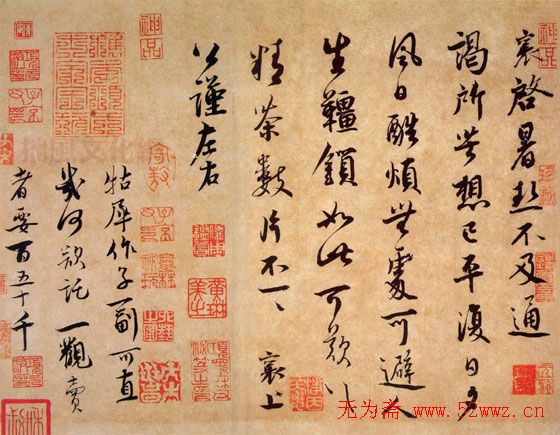 襄啓暑熱不及通
謁所苦想已平復日夕
風日酷煩無處可避人
生韁鎖如此可歎〻
精茶數片不一〻 襄上
公謹左右
牯犀作子一副可直
幾何欲託一觀賣
者要百五十千
神品
无为斋 www.52wwz.cn